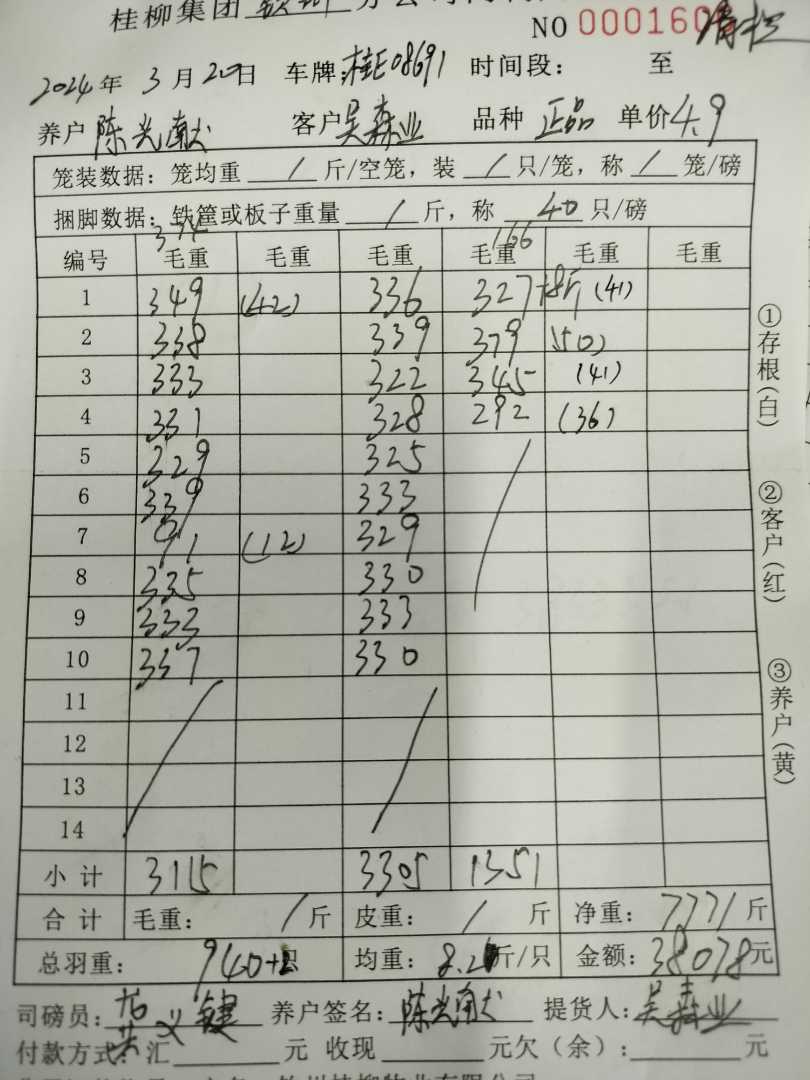 桂柳集团 钦州 分公司
NO 000160 清栏
2024年 3月20日 车牌:桂E08691 时间段: 至
养户 陈光献 客户 吴森业 品种 正品 单价 4.9
笼装数据:笼均重 / 斤/空笼,装 / 只/笼,称 / 笼/磅
捆脚数据:铁筐或板子重量 / 斤,称 40 只/磅
374 166
编号 毛重 毛重 毛重 毛重 毛重 毛重
1 349 (42) 336 327 +8斤 (41)
2 338 339 379 (50)
3 333 322 345 (41)
4 331 328 292 (36)
5 329 325
6 339 333
7 91 (12) 329
8 335 330
9 333 333
10 337 330
11
12
13
14
小计 3115 3305 1351
合计 毛重: / 斤 皮重: / 斤 净重: 7771 斤
总羽重: 940+2只 均重: 8.2斤/只 金额: 38078元
司磅员: 义键 养户签名: 陈光献 提货人: 吴森业
付款方式:汇 元 收现 元欠(余): 元
①存根(白)
②客户(红)
③养户(黄)